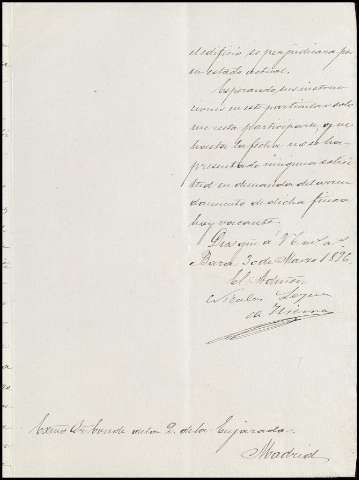 el edificio se perjudicara por
su estado actual.
Esperando sus instruc
ciones en este particular solo
me resta participarle, que
hasta la fecha no se ha
presentado ninguna solici
tud en demanda del arren
damiento de dicha finca
hoy vacante.
Dios gue á V. E. m. a.
Baza 30 de Marzo 1896
El Admor
Nicolas
de
Excmo Sr Conde de la P. de la Enjarada.
Madrid